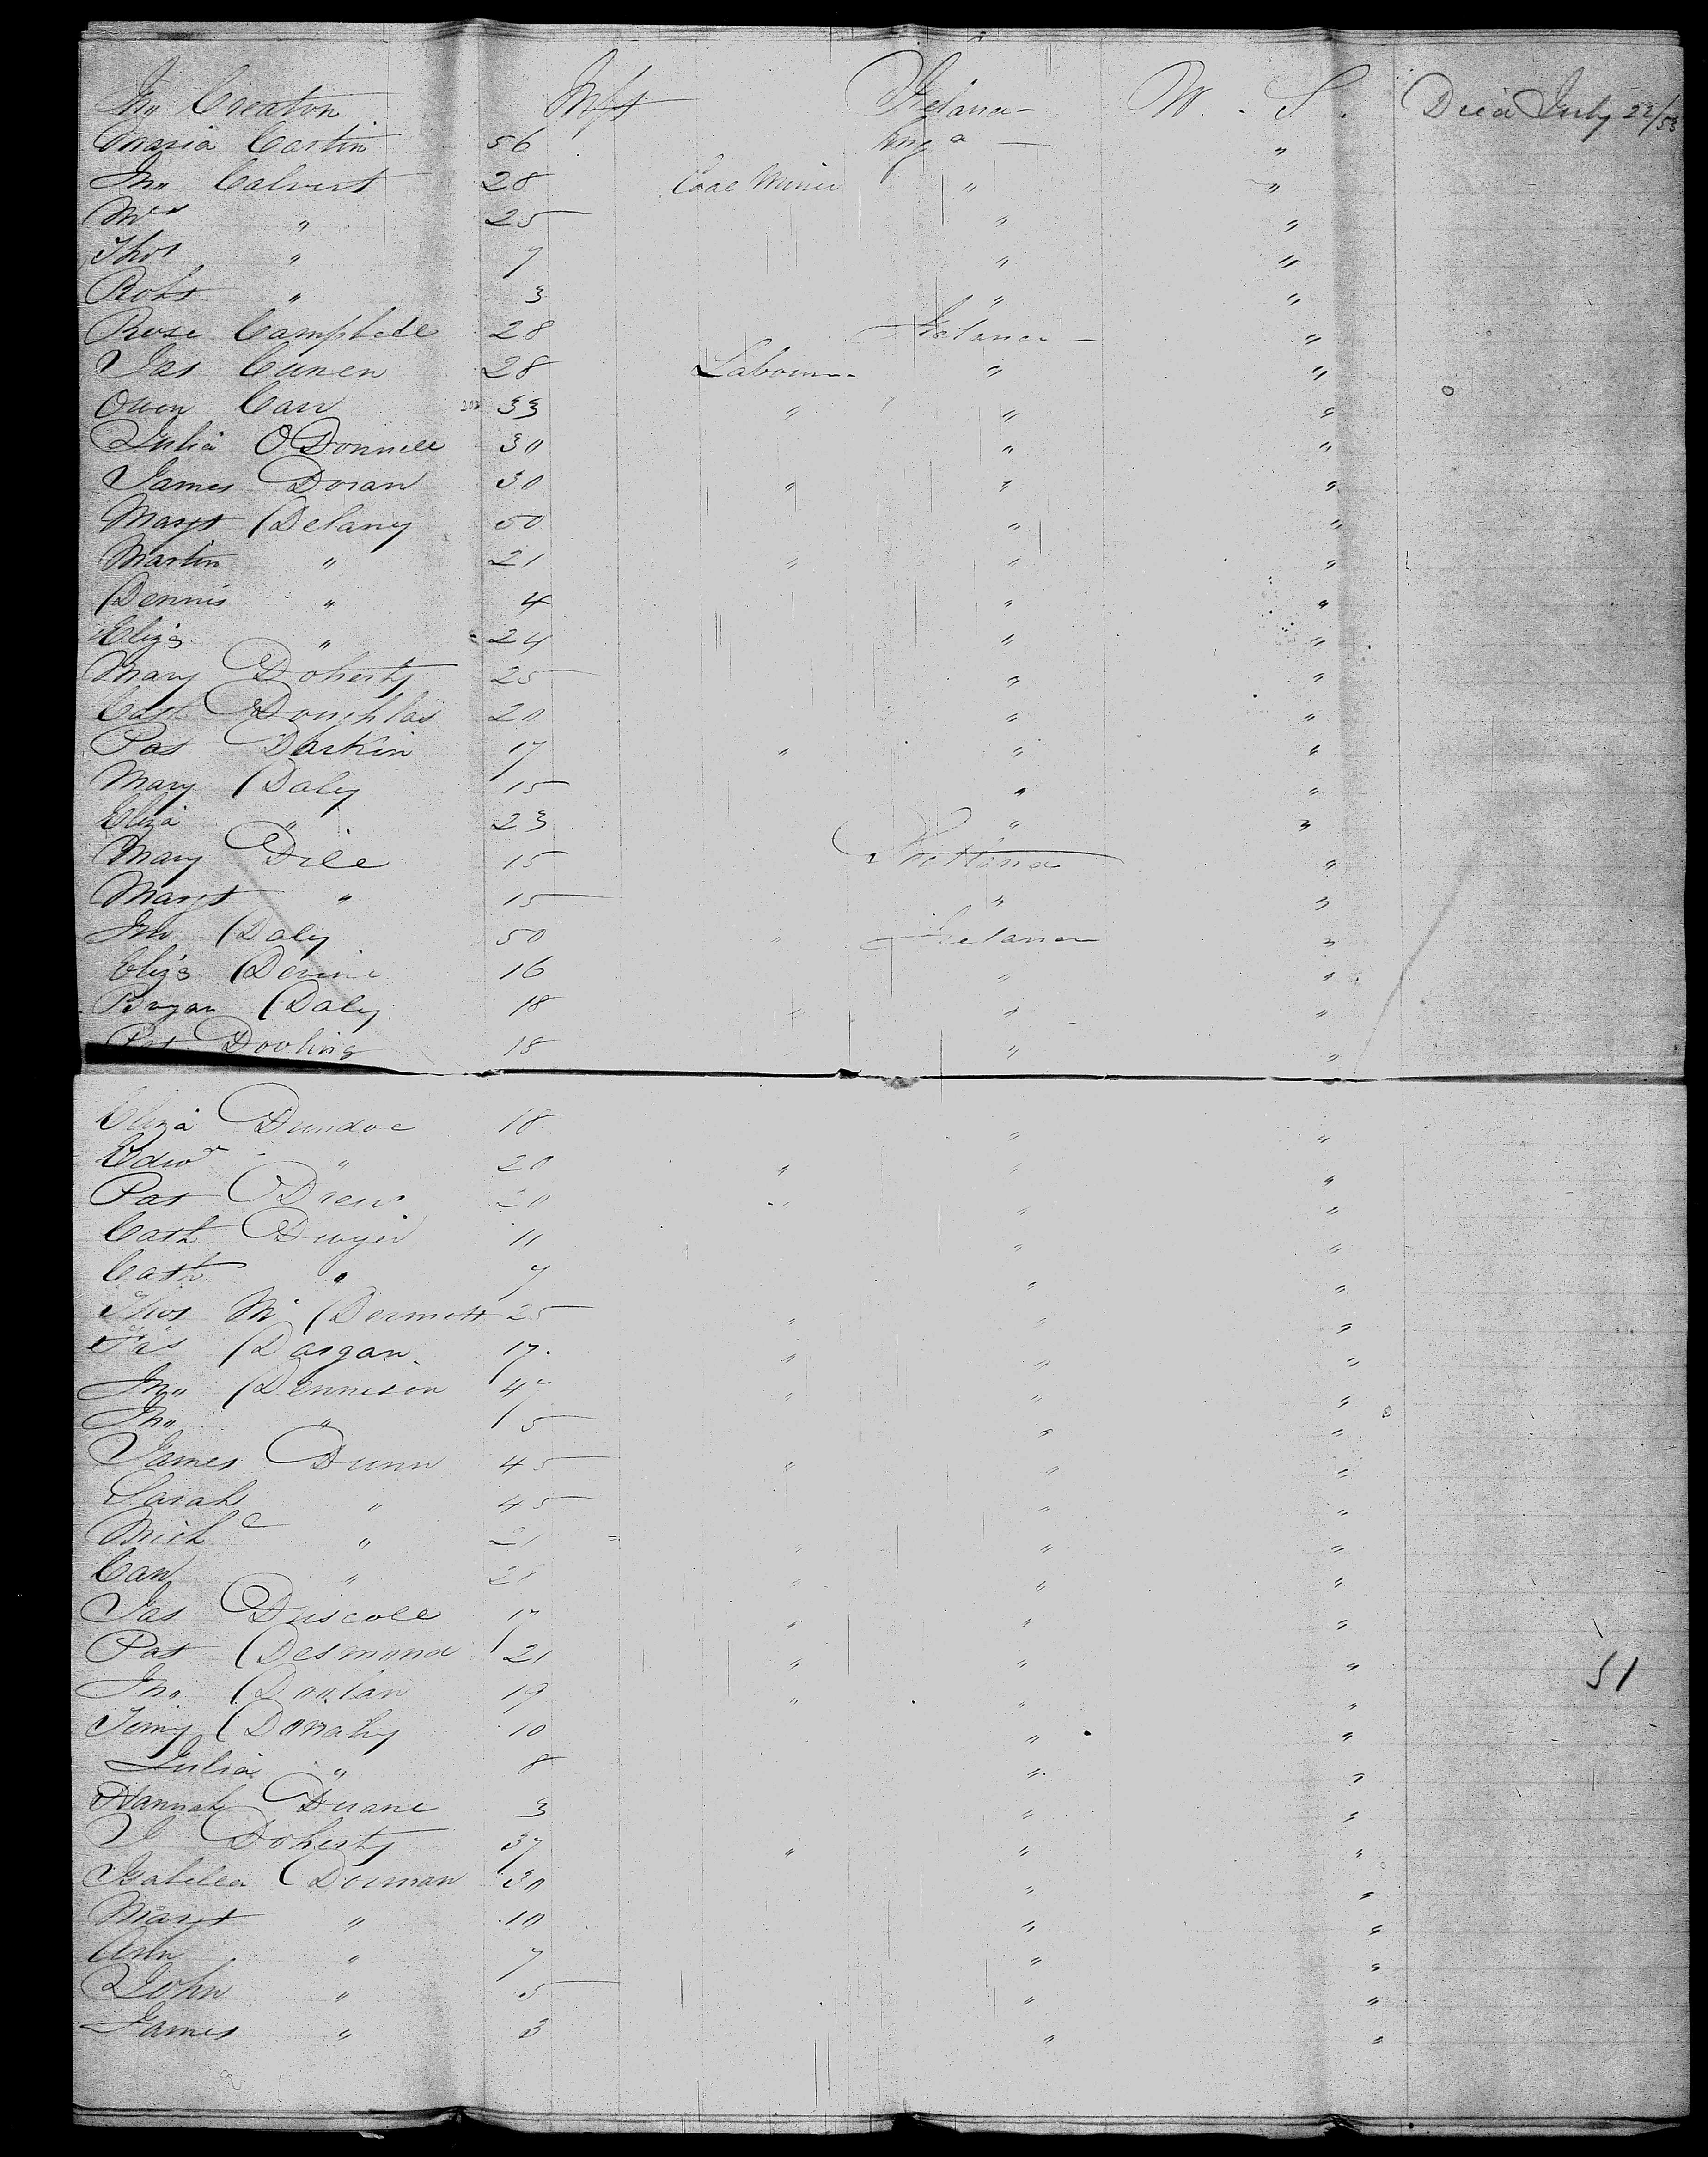 Jno Creaton Inft Ireland U. S. Died July 22/53
Maria Cartin 56 Engd "
Jno Calvert 28 Coal Miner " "
Mrs " 25 " "
Thos " 7 " "
Robt " 3 " "
Rose Campbell 28 Ireland "
Jas Cunen 28 Labourer " "
Owen Carr 33 " " "
Julia O'Donnell 30 " "
James Doran 30 " " "
Margt Delany 50 " "
Martin " 21 " " "
Dennis " 4 " "
Eliza " 24 " "
Mary Doherty 25 " "
Cath Doughlas 20 " "
Pat Darkin 17 " " "
Mary Daly 15 " "
Eliza " 23 " "
Mary Dill 15 Scotland "
Margt " 15 " "
Jno Daly 50 " Ireland "
Eliza Devine 16 " "
Bryan Daly 18 " " "
Pat Dooling 18 " "
Eliza Dundoe 18 " "
Edwd " 20 " " "
Pat Drew 20 " " "
Cath Dwyer 11 " "
Cath " 7 " "
Thos Mc Dermott 25 " " "
Dargan 17 " " "
Jno Dennison 47 " " "
Jno " 5 " "
James Dunn 45 " " "
Sarah " 45 " "
Michl " 21 " " "
" " " "
Jas Driscoll 17 " " "
Pat Desmond 21 " " " 51
Jno Doolan 19 " " "
Donahy 10 " "
Julia " 8 " "
Hannah Duane 3 " "
J Doherty 37 " " "
Isabella Dorman 30 " "
Margt " 10 " "
Ann " 7 " "
John " 5 " "
James " 3 " "